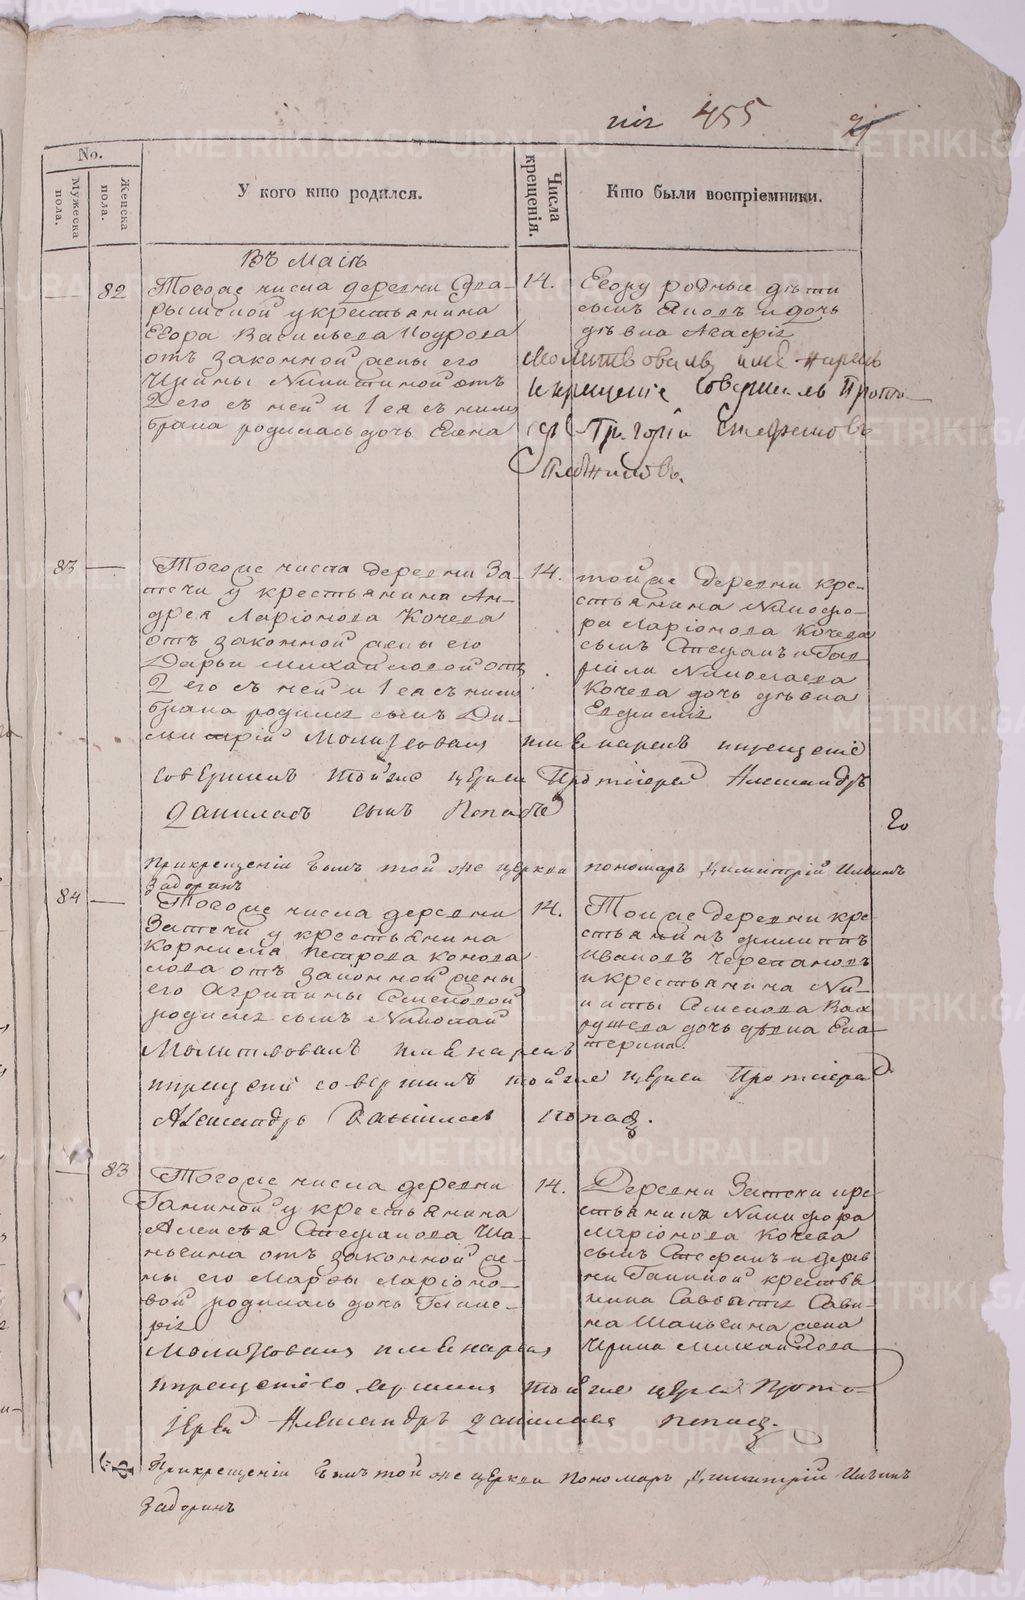 455
No.
Мужеска пола.
Женска пола.
У кого кто родился.
Числа крещенія.
Кто были воспріемники.
Въ Маіѣ
82
Тогоже числа деревни
у крестьянина
Егора Васильева
отъ законной жены его
Ирины Никитиной отъ
2 его съ ней и 1 ея съ нимъ
брака родилась дочь Елена
14.
Егору родные дѣти
сынъ и дочь
дѣвка
Молитвовалъ имя нарекъ
и крещеніе совершилъ Прото-
іерей Григорій Стефановъ
83
Тогоже числа деревни За-
течи у крестьянина Ан-
дрея Ларіонова Кочева
отъ законной жены его
Дарьи Михайловой отъ
2 его съ ней и 1 ея съ нимъ
брака родился сынъ Ди-
митрій
14.
тойже деревни кре-
стьянина Никифо-
ра Ларіонова Кочева
сынъ Стефанъ и Гав-
рійла Николаева
Кочева дочь дѣвка
Евдокія
Молитвовалъ имя нарекъ и крещеніе
совершилъ тойже церкви Протоіерей Александръ
Даниловъ сынъ Поповъ
При крещеніи былъ той же церкви пономарь Димитрій Ивинъ
Задоринъ
84
Тогоже числа деревни
Затечи у крестьянина
Корнилія Петрова Конова
лова отъ законной жены
его Агрипины Семеновой
родился сынъ Николай
14.
Тойже деревни кре
стьянинъ Филиппъ
Ивановъ Черепановъ
и крестьянина Ни-
киты Семенова Вах
рушева дочь дѣвка Ека-
терина.
Молитвовалъ имя нарекъ
и крещеніе совершилъ тойже церкви Протоіерей
Александръ Даниловъ
83
Тогоже числа деревни
Ганиной у крестьянина
Алексѣя Стефанова Ша-
ньгина отъ законной же-
ны его Марѳы Ларіоно-
вой родилась дочь Глике-
рія
14.
Деревни Затечи кре
стьянина Никифора
Ларіонова Кочева
сынъ Стефанъ и дерев
ни Ганиной крестья
нина Савватія Сави-
на Шаньгина жена
Ирина Михайлова
Молитвовалъ имя нарекъ
и крещеніе совершилъ тойже церкви Прото-
іерей Александръ Даниловъ
При крещеніи былъ той же церкви пономарь Димитрій Ивинъ
Задоринъ
METRIKI.GASO-URAL.RU